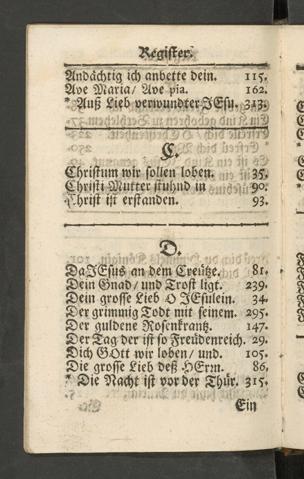 Register.
Andächtig ich anbette dein. 115.
Ave Maria/ Ave pia. 162.
* Auß Lieb verwundter JEsu. 313.
C.
Christum wir sollen loben. 35.
Christi Mutter stuhnd in 90.
Christ ist erstanden. 93.
D.
Da JEsus an dem Creütze. 81.
Dein Gnad/ und Trost ligt. 239.
Dein grosse Lieb O JEsulein. 34.
Der grimmig Todt mit seinem. 295.
Der guldene Rosenkrantz. 147.
Der Tag der ist so Freudenreich. 29.
Dich GOtt wir loben/ und. 105.
Die grosse Lieb deß HErrn. 86.
* Die Nacht ist vor der Thür. 315.
Ein